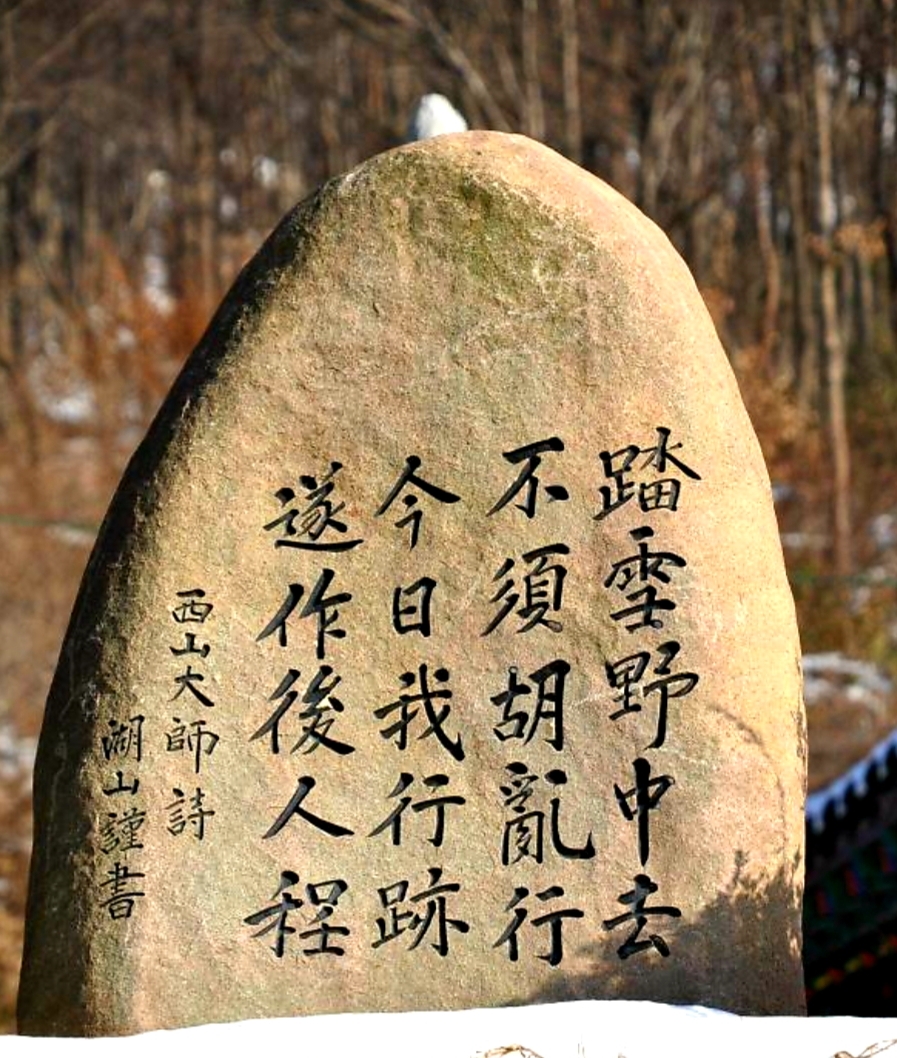 踏雪野中去
不須胡亂行
今日我行跡
遂作後人程
西山大師詩
湖山謹書